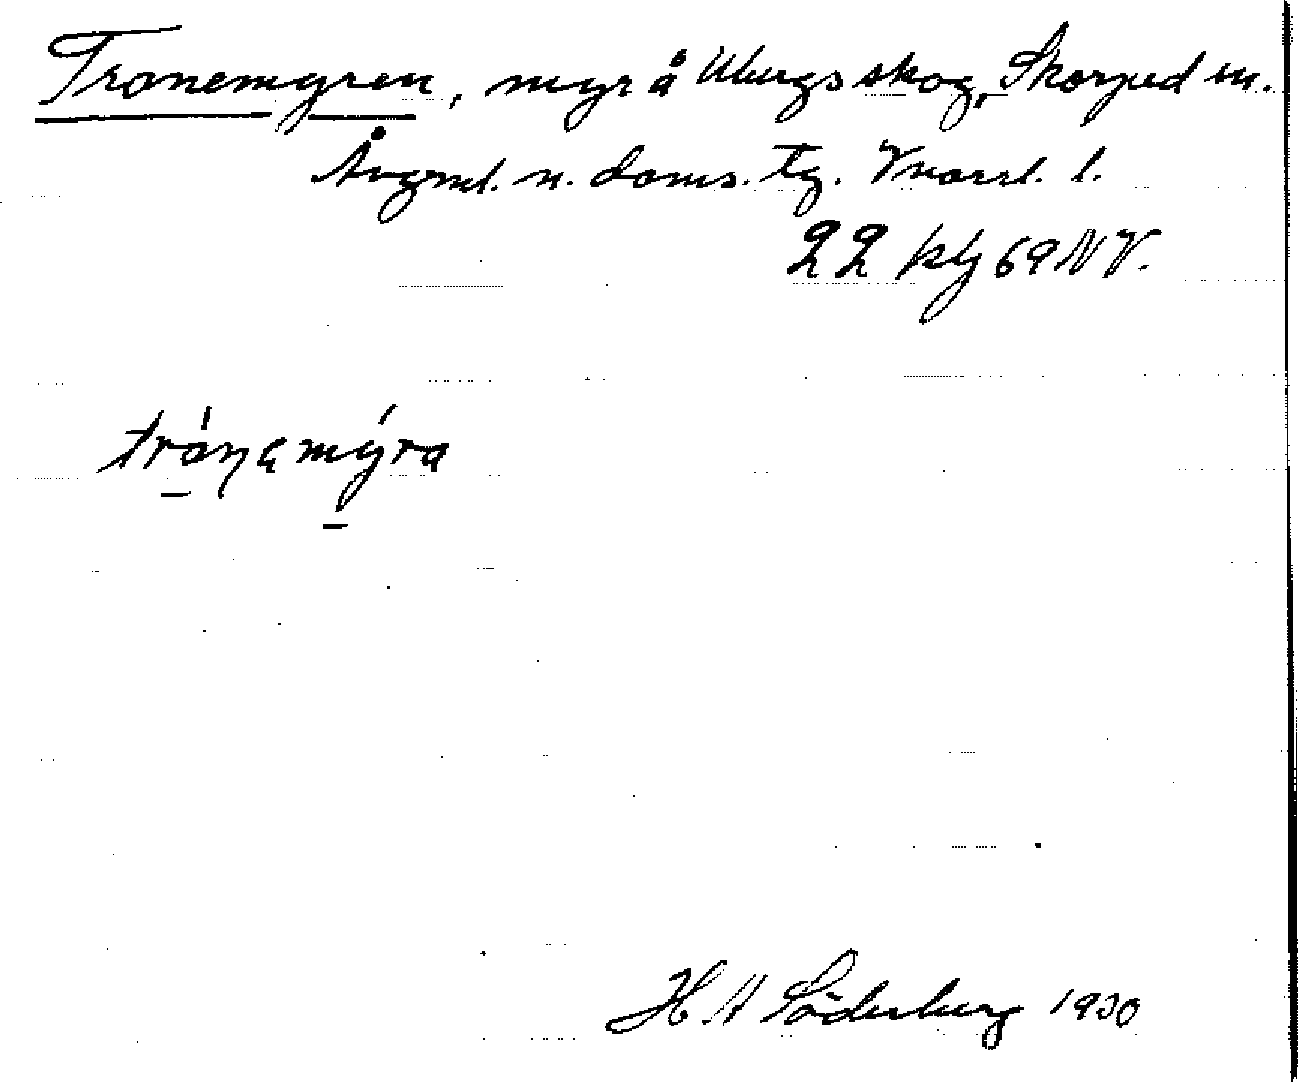 Tranemyren, myr å Ubergsskog, Skorped sn.
Ångml. n. doms. tg. Vnorrl. l.
22 kfj 69 NV.
tránamýra
H A Söderberg 1930